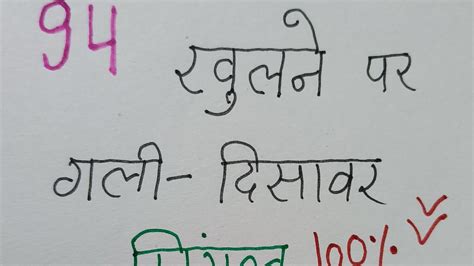 94 खुलने पर
गली- दिसावर
100%